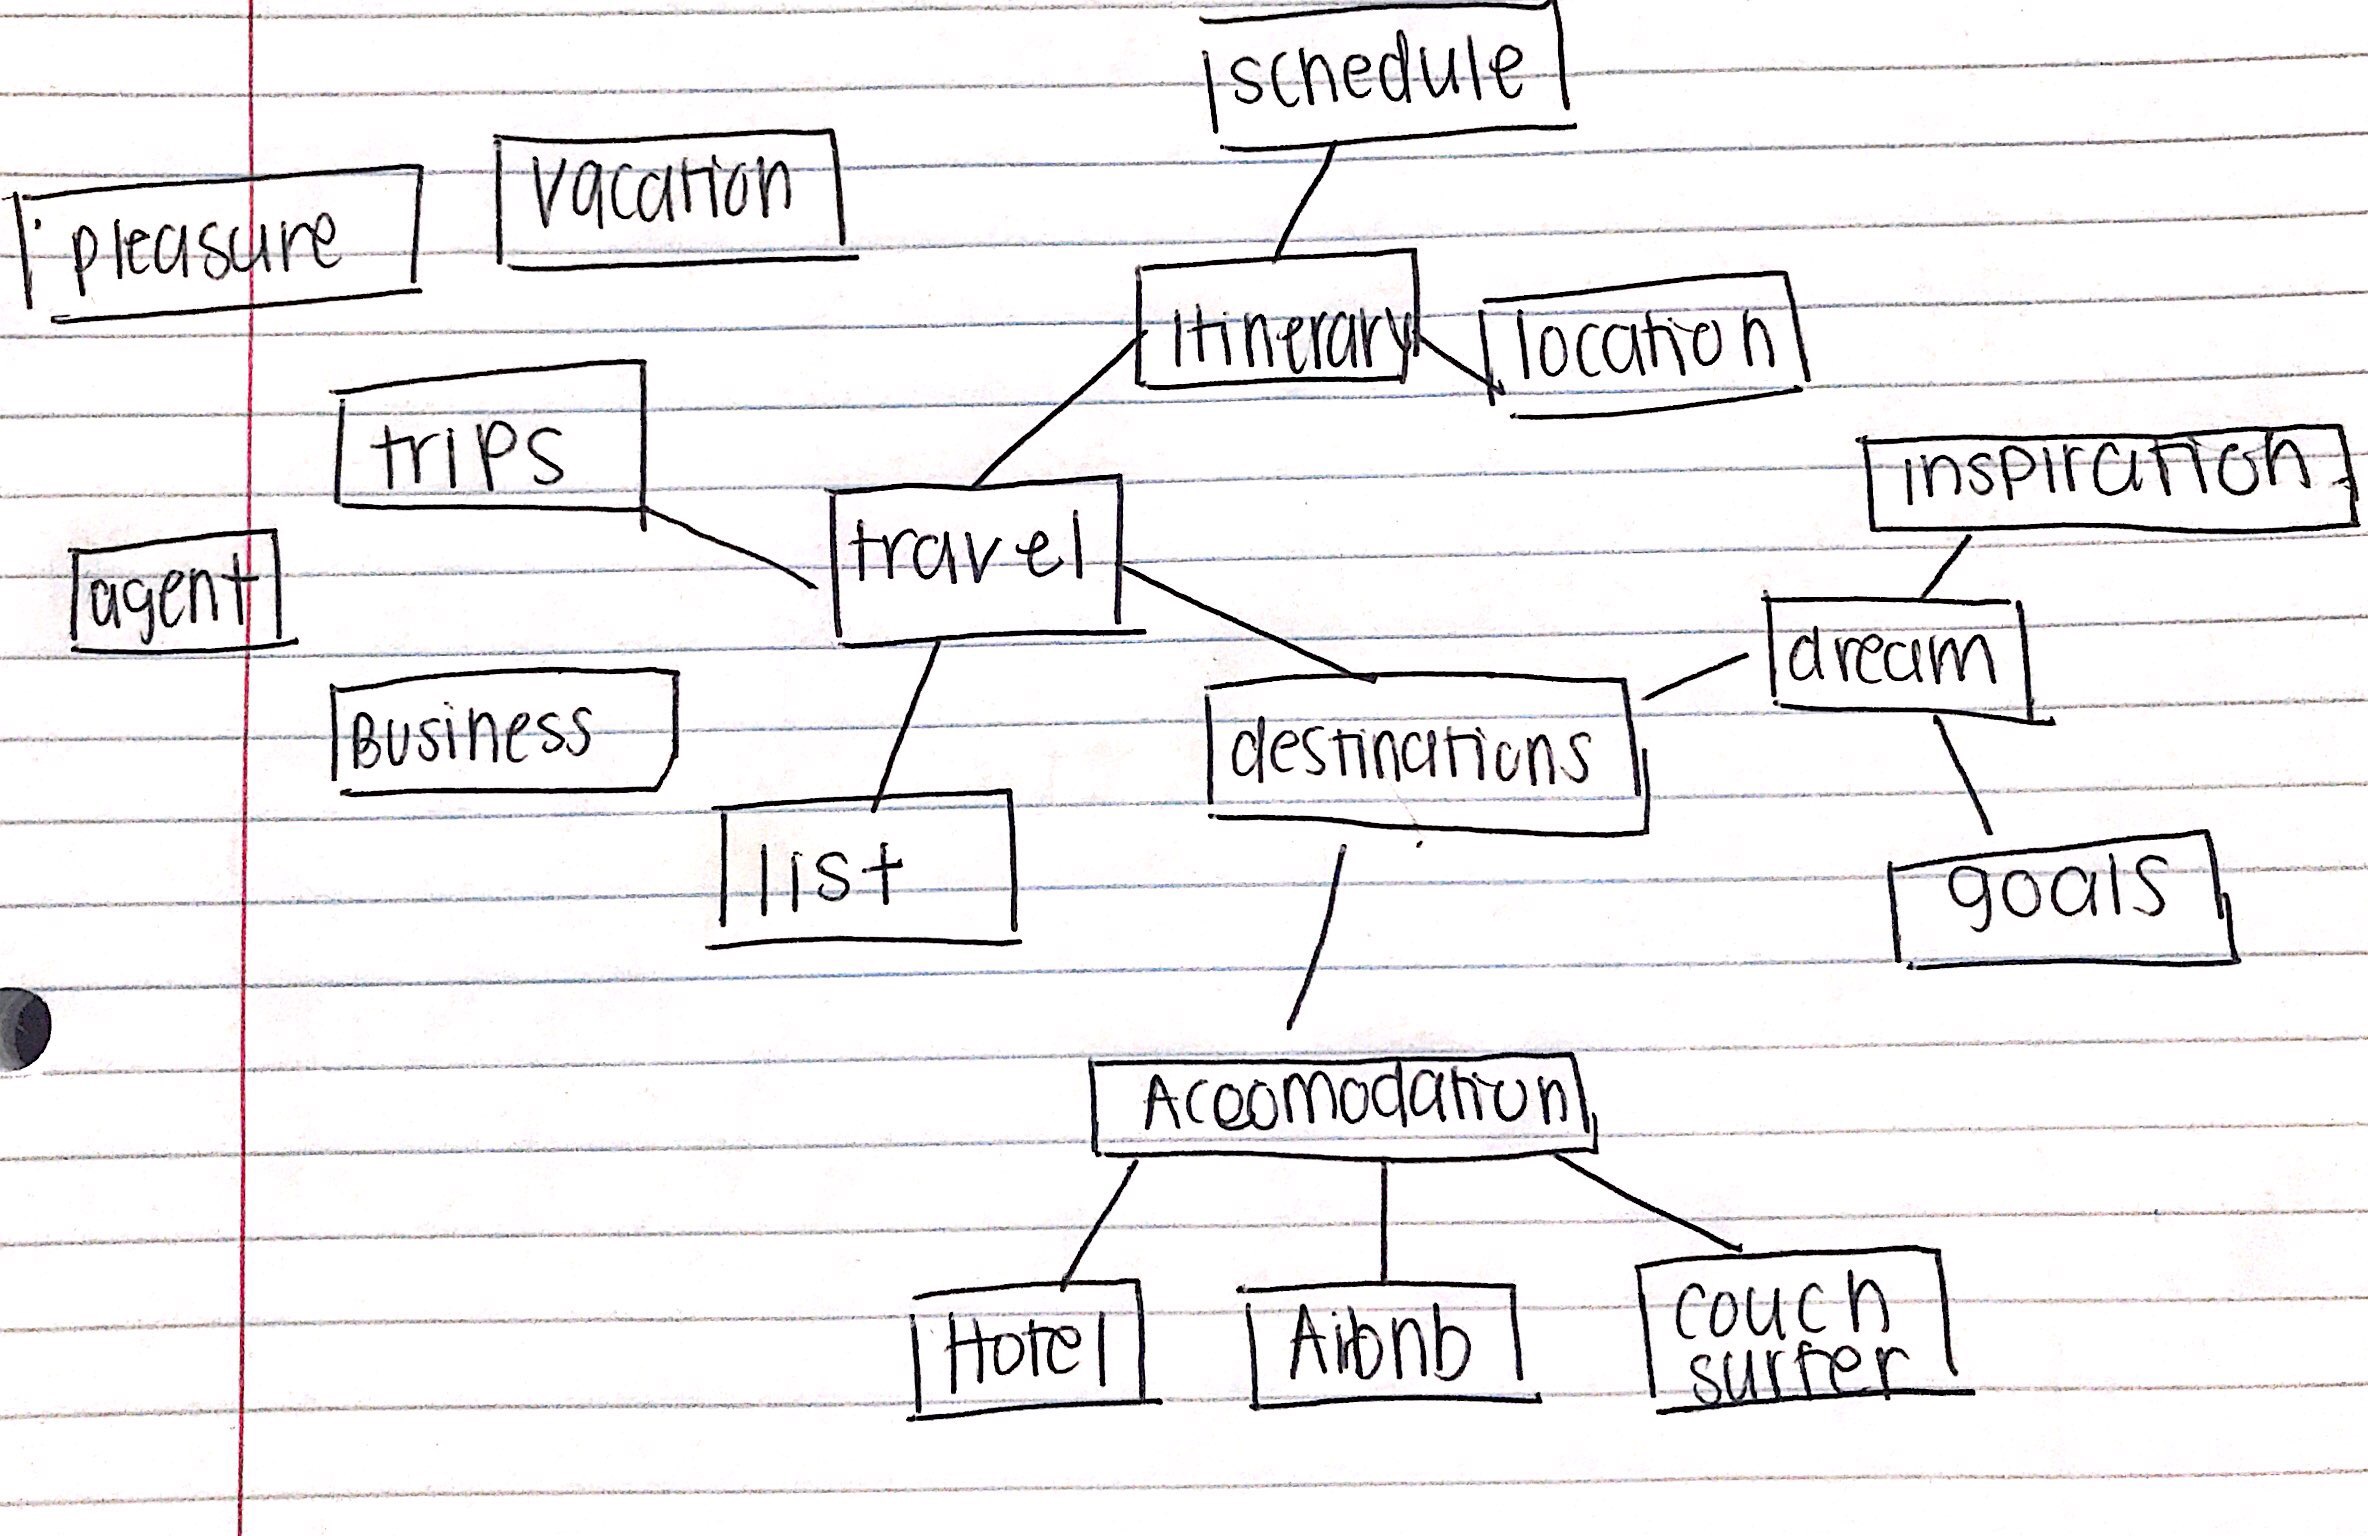 schedule
vacation
pleasure
Itinerary
location
trips
inspiration
travel
agent
dream
Business
destinations
list
goals
Accomodation
Hotel
Airbnb
couch
surfer